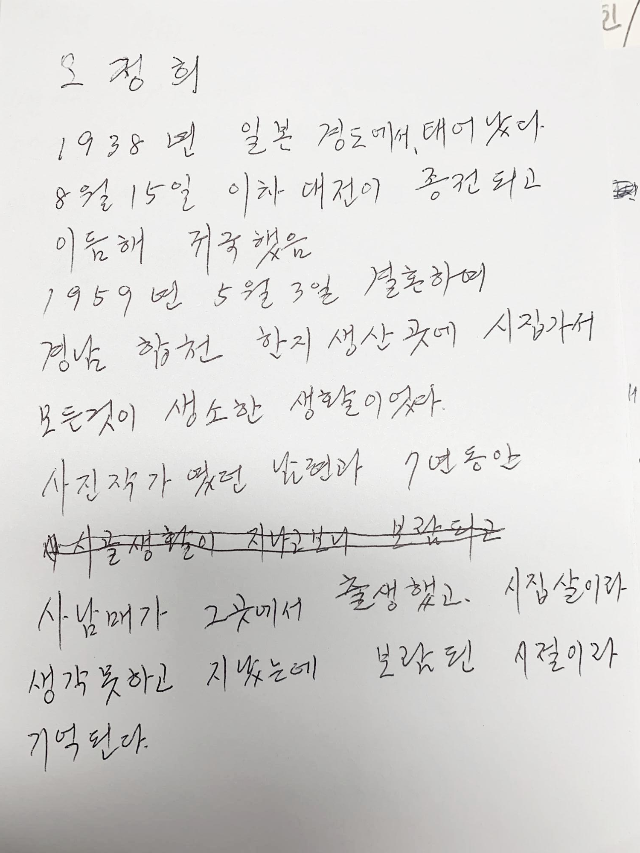 오정희
1938년 일본 경도에서 태어났다.
8월 15일 이차대전이 종전되고
이듬해 귀국했음
1959년 5월 3일 결혼하여
경남 합천 한지 생산 곳에 시집가서
모든것이 생소한 생활이었다.
사진작가 였던 남편과 7년동안
시골생활이 지나고보니 보람되고
사남매가 그곳에서 출생했고. 시집살이라
생각못하고 지냈는데 보람된 시절이라
기억된다.